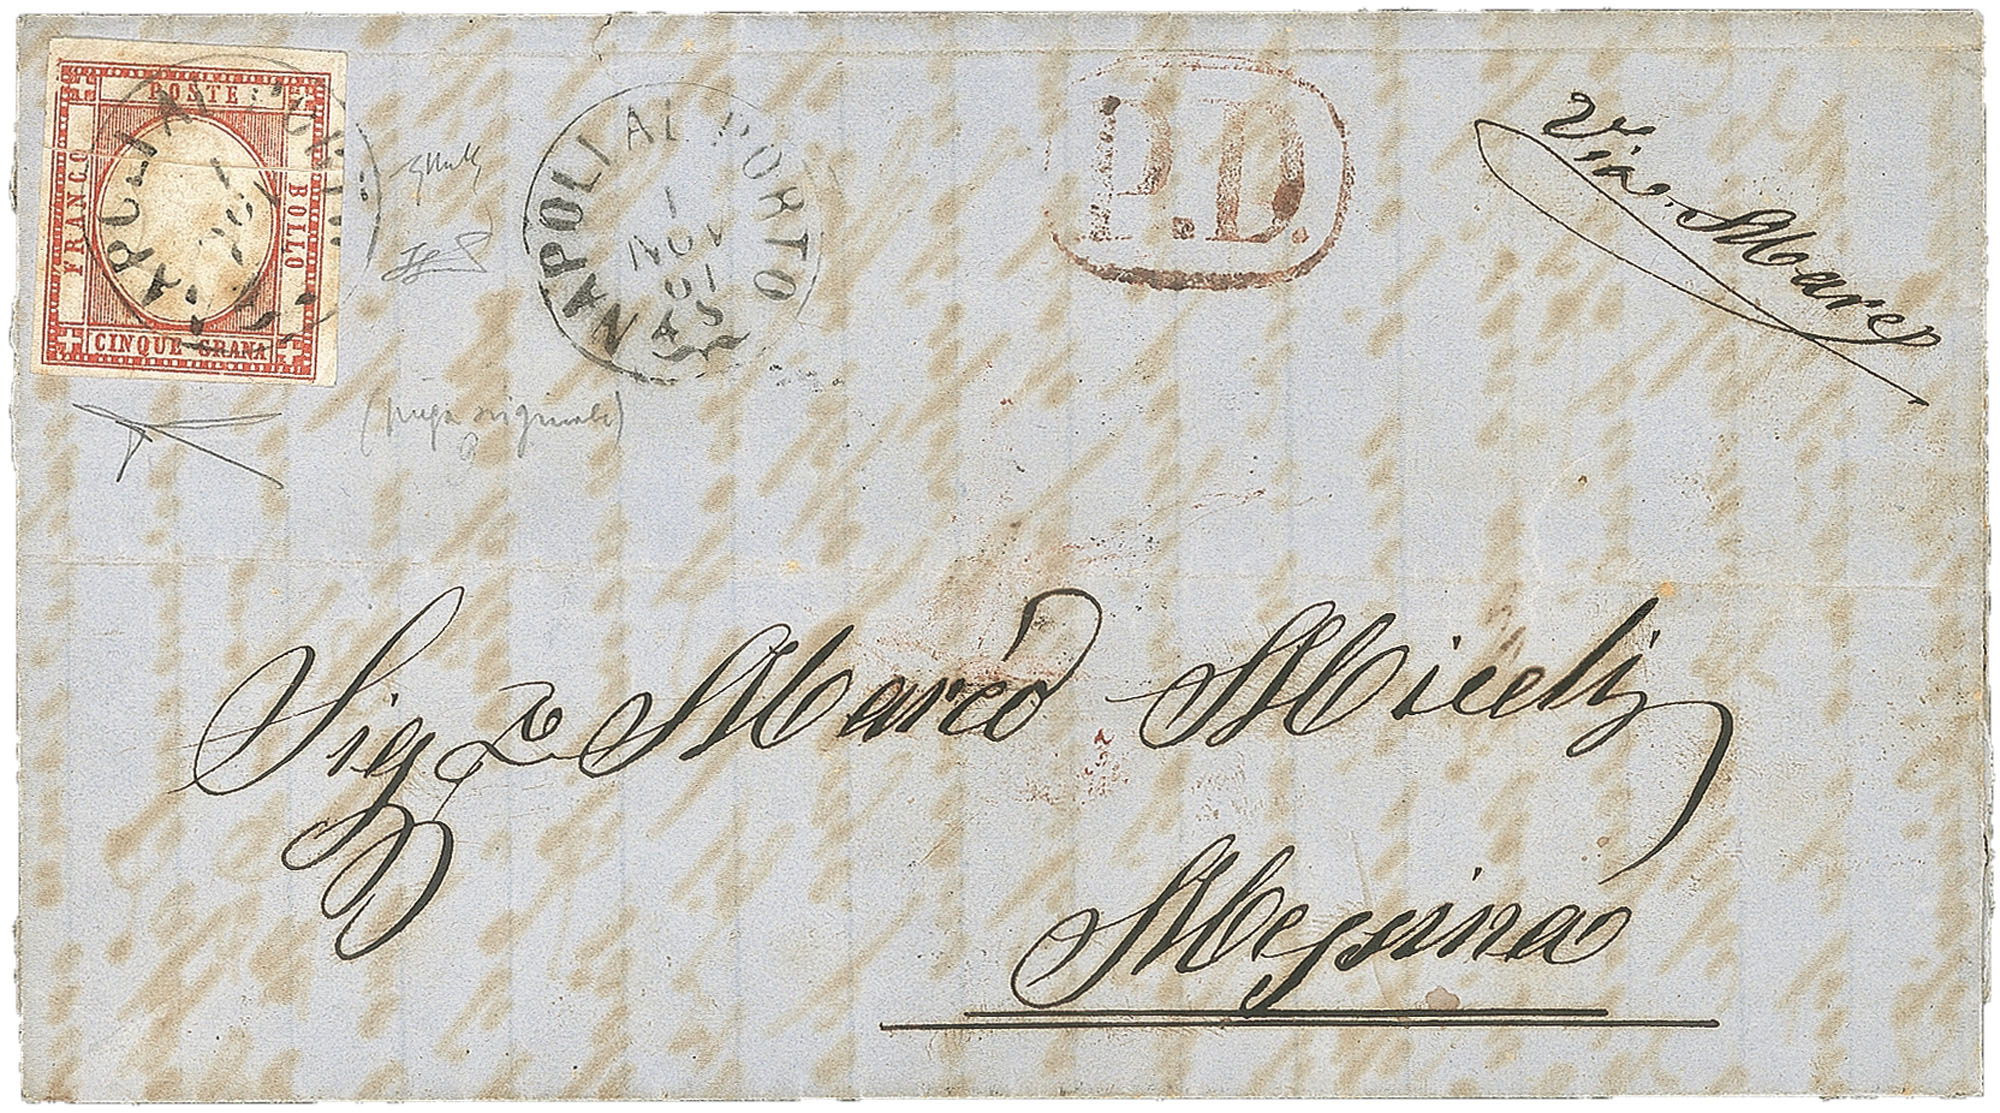 POSTE
FRANCO
BOLLO
CINQUE GRANA
NAPOLI AL PORTO
1
NOV
61
P.D.
Via Mare
(piega originale)
Sig.r Marco Miceli
Messina